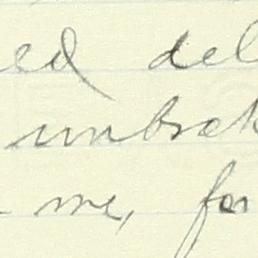 ed del
unbrok
me, for